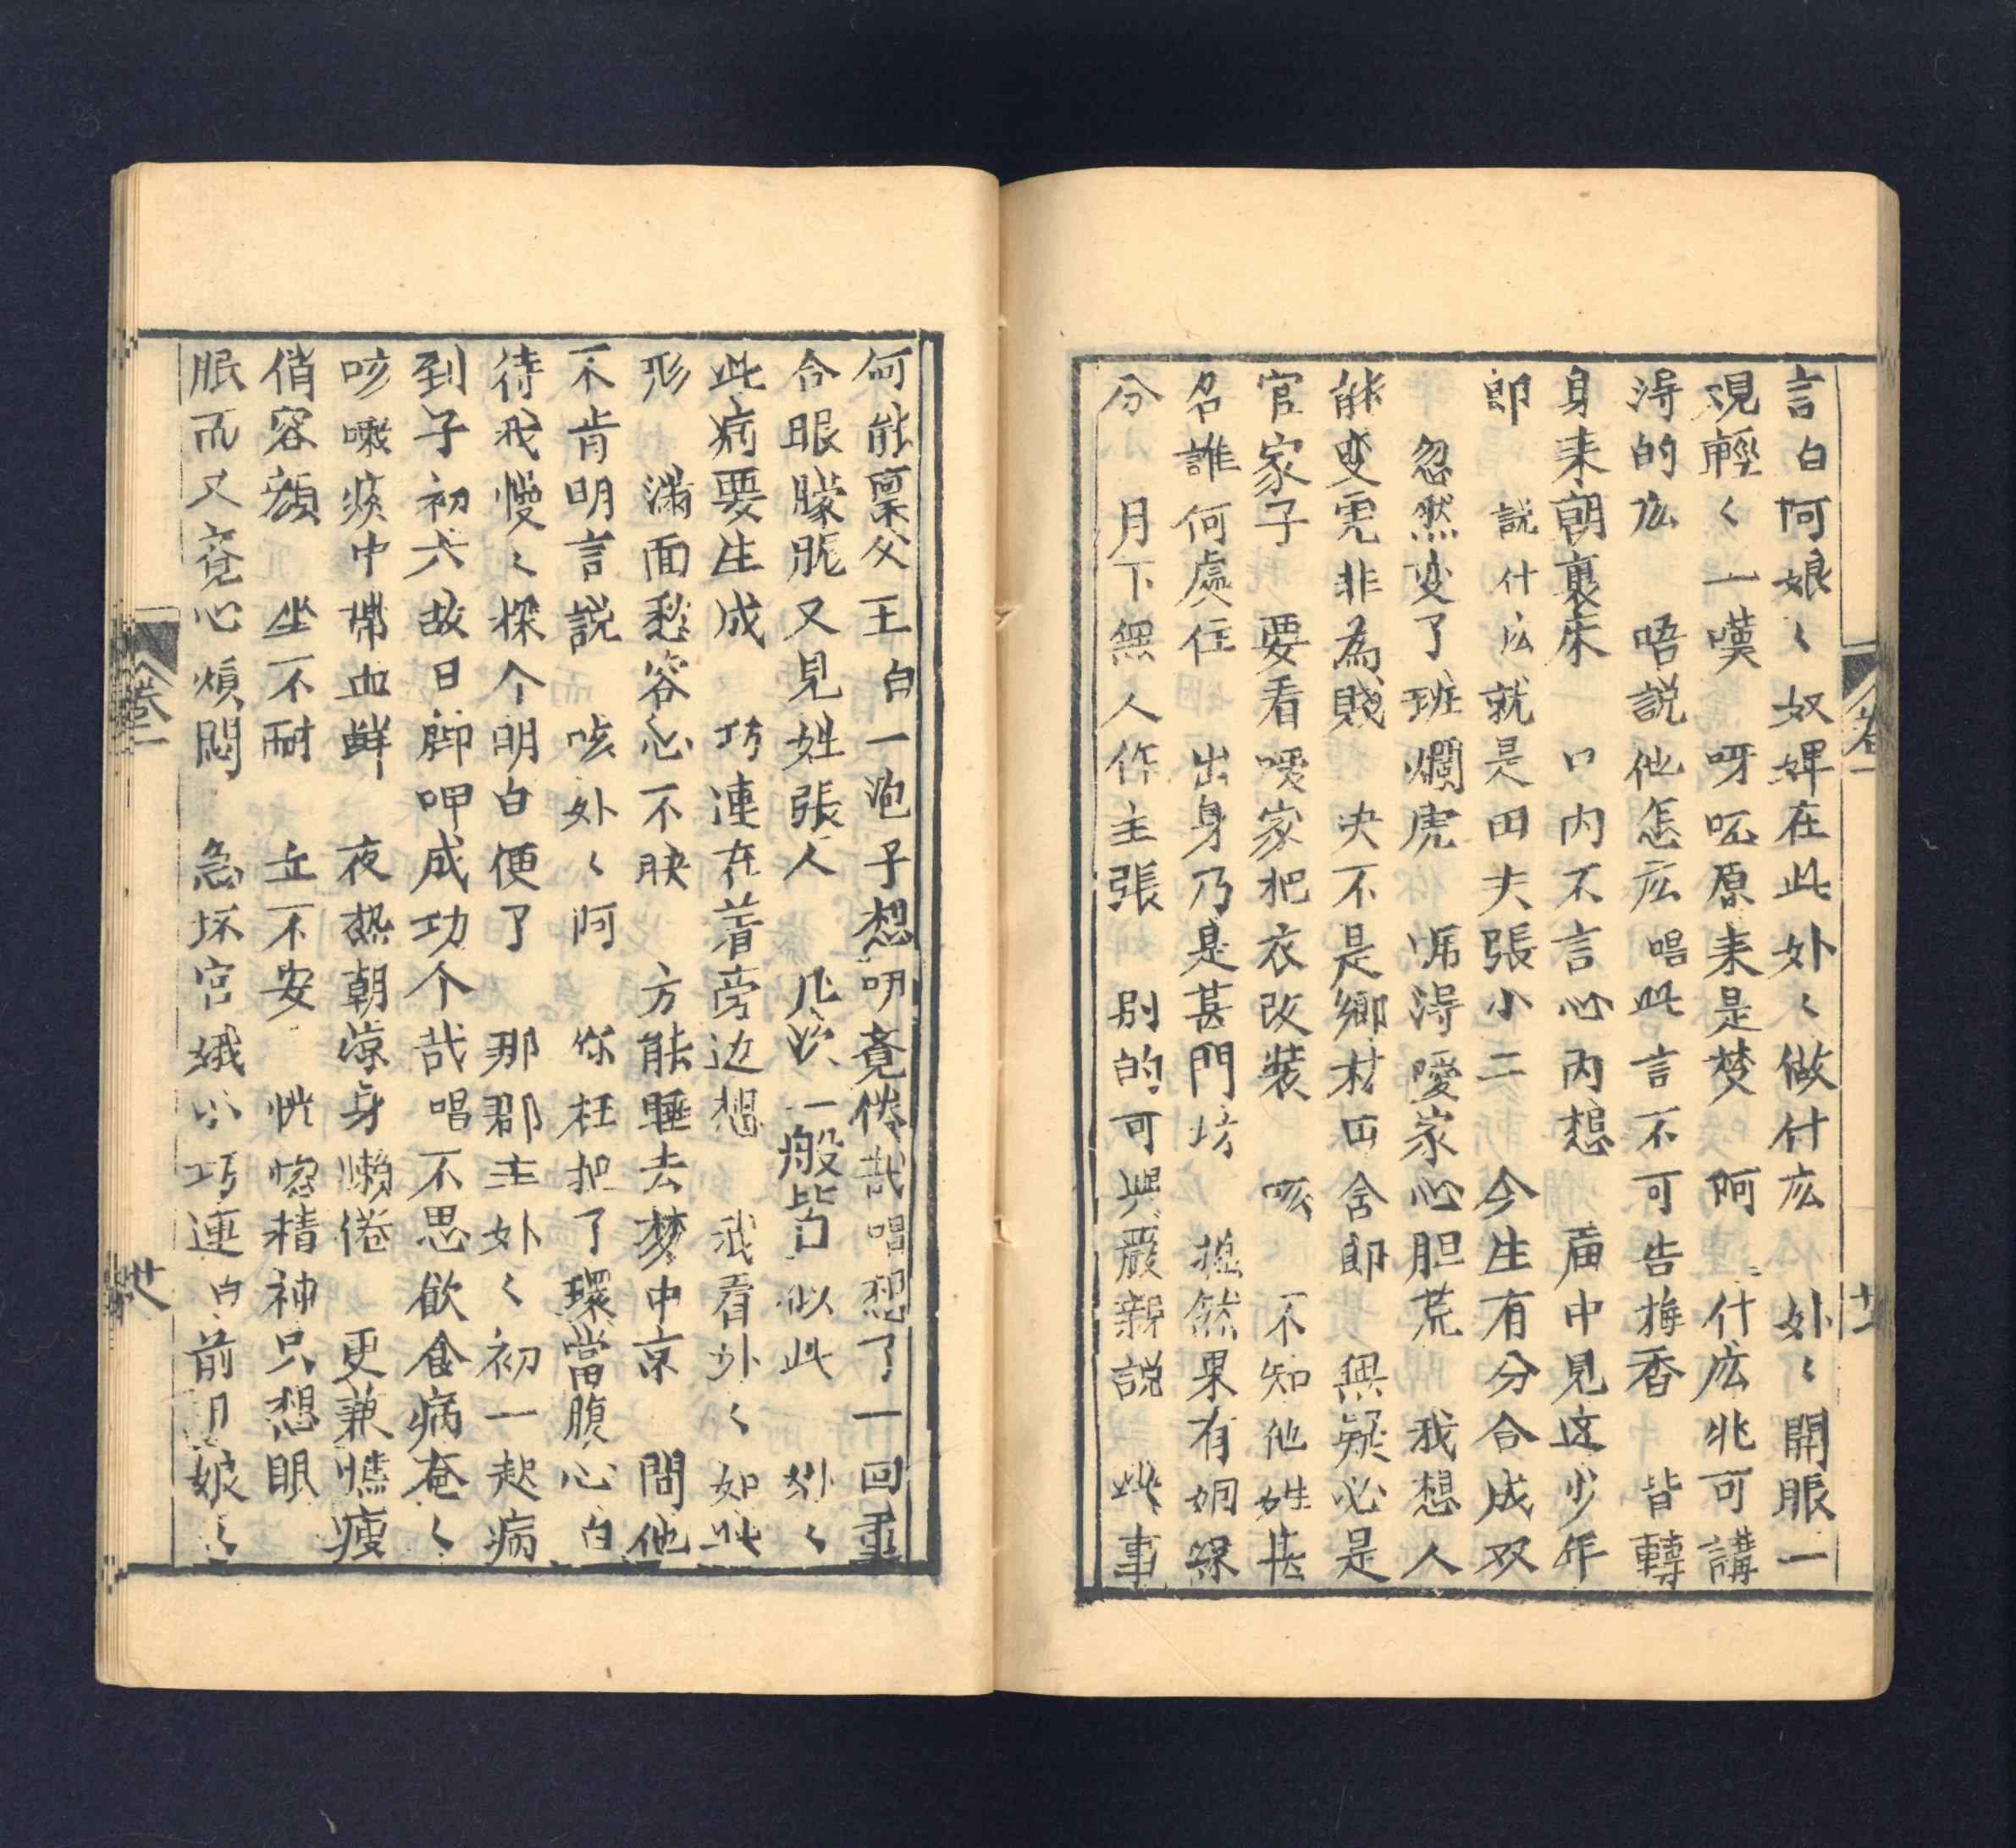 言白阿娘〻奴婢在此外〻做什庅 外〻開眼一
覌輕〻一嘆 呀呸原来是梦 阿 什庅兆可講
淂的庅 唔説他怎庅唱此言不可告梅香 背轉
身来朝裏床 口内不言心内想 庙中見这少年
郎 説什庅就是田夫張小二 今生有分合成双
忽然变了班斕虎 唬淂噯家心胆荒 我想人
能变虎非為賤 决不是鄉村田舍郎 無疑必是
官家子 要看噯家把衣改裝 咳 不知他姓甚
名誰何處住 出身乃是甚門坊 摡然果有姻縁
分 月下無人作主張 别的可與嚴親説 此事
卷一
何能禀父王白一泡子想明竟倦哉唱想了一回重
合眼朦胧又見姓張人 凡次一般皆似此 外〻
此病要生成 巧連在着旁边想 我看外〻如此
形 滿面愁容心不快 方能睡去梦中京 問他
不肯明言説 咳外〻阿 你枉把了環當腹心白
待我慢〻探个明白便了 那郡主外〻初一起病
到子初六故日脚呷成功个哉唱不思飲食病奄〻
咳嗽痰中帶血鮮 夜热朝凉身懶倦 更兼憔瘦
俏容顔 坐不耐 立不安 恍惚精神只想眠
眠而又竟心煩悶 急坏宫娥小巧連白前日娘〻
卷一
廿